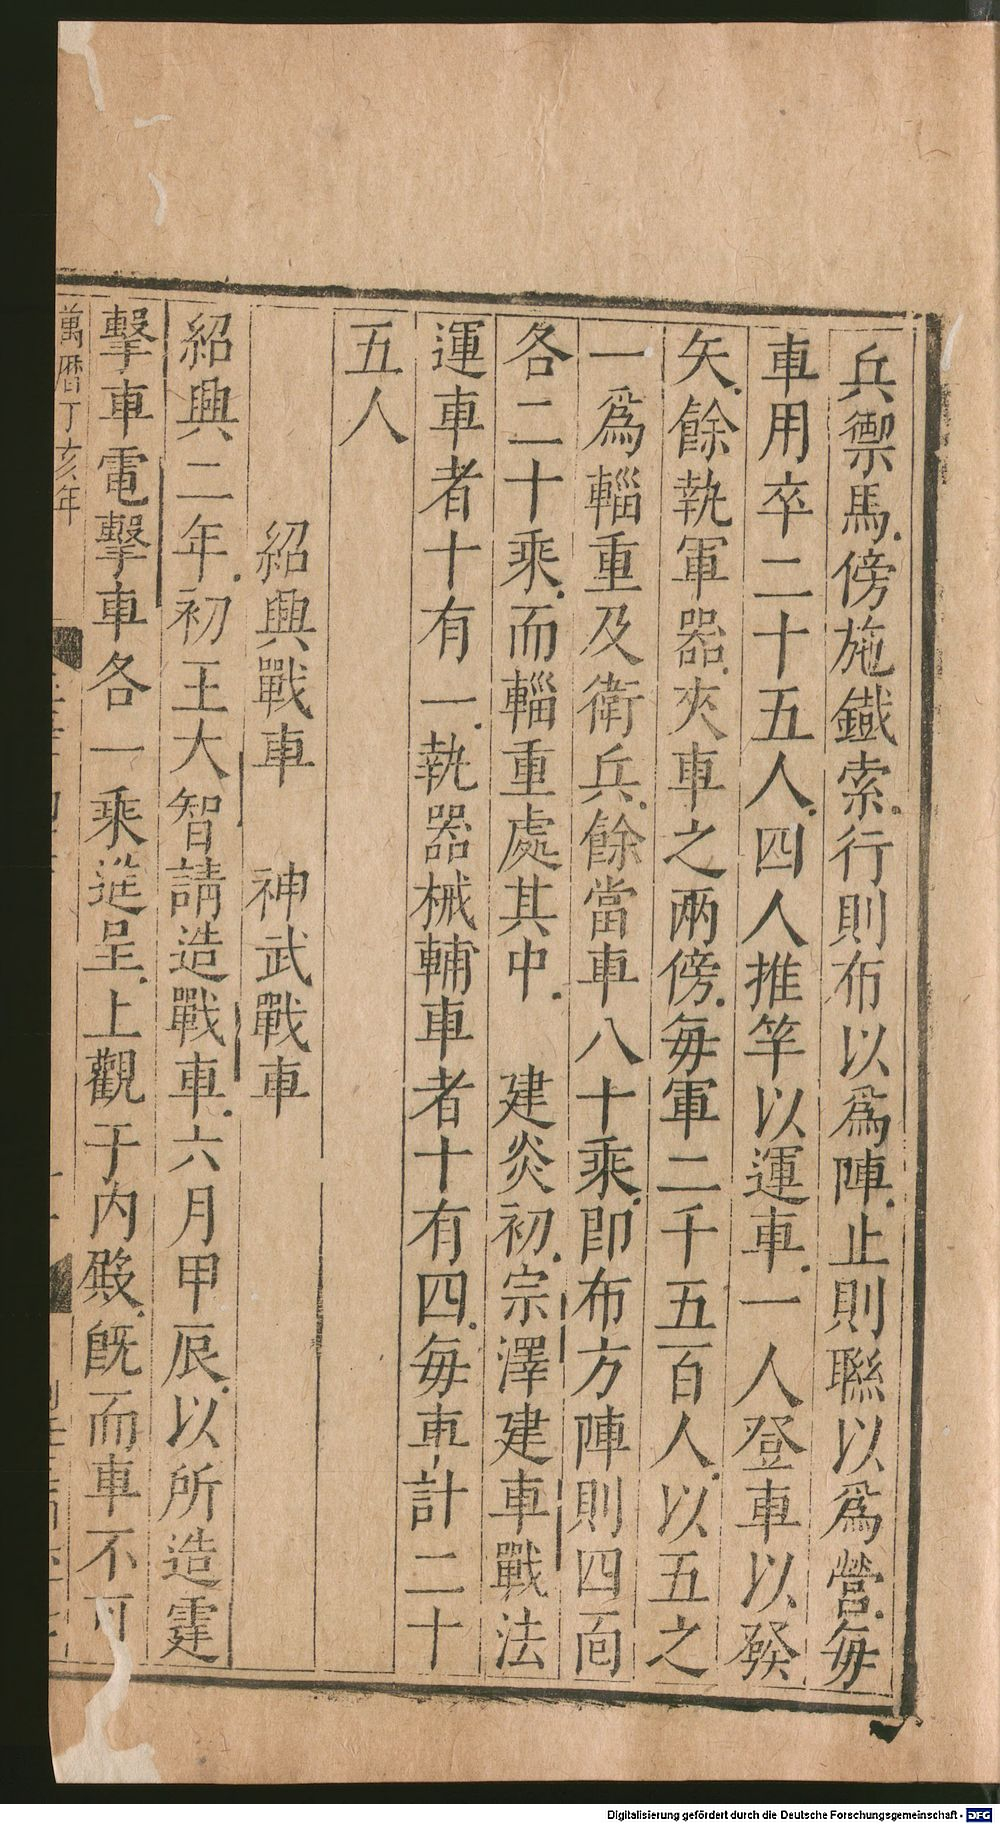 兵禦馬傍施鐵索行則布以爲陣止則聯以爲營每
車用卒二十五人四人推竿以運車一人登車以發
矢餘執軍器夾車之兩傍每軍二千五百人以五之
一爲輜重及衛兵餘當車八十乘即布方陣則四面
各二十乘而輜重處其中 建炎初宗澤建車戰法
運車者十有一執器械輔車者十有四每車計二十
五人
紹興戰車 神武戰車
紹興二年初王大智請造戰車六月甲辰以所造霆
擊車電擊車各一乘進呈上觀于内殿旣而車不可
萬曆丁亥年
Digitalisierung gefördert durch die Deutsche Forschungsgemeinschaft - DFG